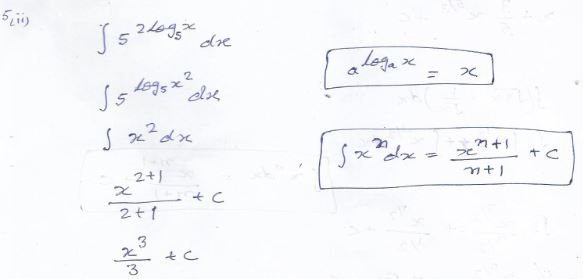 5(ii)
∫ 5^{2 log_5 x} dx
∫ 5^{log_5 x^2} dx
∫ x^2 dx
x^{2+1}/2+1 + c
x^3/3 + c
a^{log_a x} = x
∫ x^n dx = x^{n+1}/n+1 + c